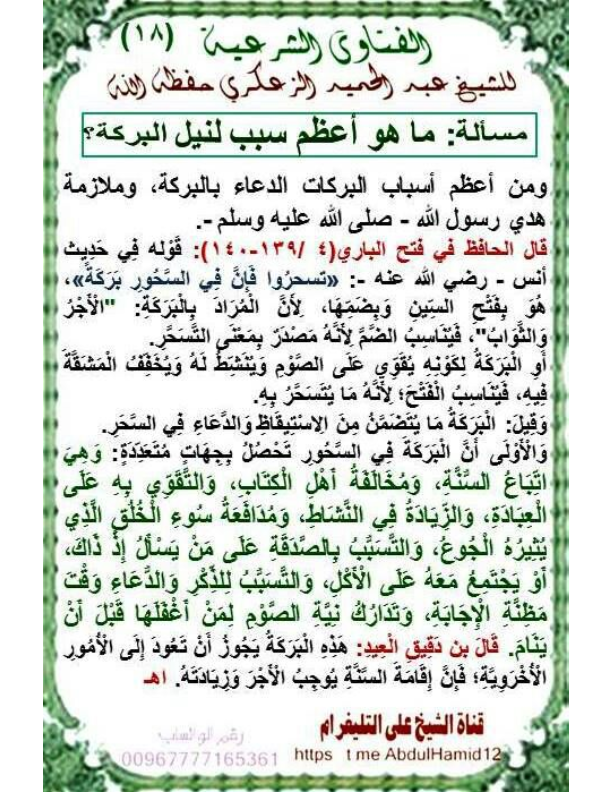 الفتاوى الشرعية (١٨)
للشيخ عبد الحميد الزعكري حفظه الله
مسألة: ما هو أعظم سبب لنيل البركة؟
ومن أعظم أسباب البركات الدعاء بالبركة، وملازمة
هدي رسول الله - صلى الله عليه وسلم -.
قال الحافظ في فتح الباري(٤ /١٣٩-١٤٠): قَوْله فِي حَدِيث
أنس - رضي الله عنه -: «تسحرُوا فَإِنَّ فِي السَّحُورِ بَرَكَةً»،
هُوَ بِفَتْحِ السِّينِ وَبِضَمِّهَا، لِأَنَّ الْمُرَادَ بِالْبَرَكَةِ: "الْأَجْرُ
وَالثَّوَابُ"، فَيُنَاسِبُ الضَّمَّ لِأَنَّهُ مَصْدَرٌ بِمَعْنَى التَّسَحُّرِ.
أَوِ الْبَرَكَةُ لِكَوْنِهِ يُقَوِّي عَلَى الصَّوْمِ وَيُنَشِّطُ لَهُ وَيُخَفِّفُ الْمَشَقَّةَ
فِيهِ، فَيُنَاسِبُ الْفَتْحَ؛ لِأَنَّهُ مَا يُتَسَحَّرُ بِهِ.
وَقِيلَ: الْبَرَكَةُ مَا يُتَضَمَّنُ مِنَ الِاسْتِيقَاظِ وَالدُّعَاءِ فِي السَّحَرِ.
وَالْأَوْلَى أَنَّ الْبَرَكَةَ فِي السَّحُورِ تَحْصُلُ بِجِهَاتٍ مُتَعَدِّدَةٍ: وَهِيَ
اتِّبَاعُ السُّنَّةِ، وَمُخَالَفَةُ أَهْلِ الْكِتَابِ، وَالتَّقَوِّي بِهِ عَلَى
الْعِبَادَةِ، وَالزِّيَادَةُ فِي النَّشَاطِ، وَمُدَافَعَةُ سُوءِ الْخُلُقِ الَّذِي
يُثِيرُهُ الْجُوعُ، وَالتَّسَبُّبُ بِالصَّدَقَةِ عَلَى مَنْ يَسْأَلُ إِذْ ذَاكَ،
أَوْ يَجْتَمِعُ مَعَهُ عَلَى الْأَكْلِ، وَالتَّسَبُّبُ لِلذِّكْرِ وَالدُّعَاءِ وَقْتَ
مَظِنَّةِ الْإِجَابَةِ، وَتَدَارُكُ نِيَّةِ الصَّوْمِ لِمَنْ أَغْفَلَهَا قَبْلَ أَنْ
يَنَامَ. قَالَ بن دَقِيقِ الْعِيدِ: هَذِهِ الْبَرَكَةُ يَجُوزُ أَنْ تَعُودَ إِلَى الْأُمُورِ
الْأُخْرَوِيَّةِ؛ فَإِنَّ إِقَامَةَ السُّنَّةِ يُوجِبُ الْأَجْرَ وَزِيَادَتَهُ. اهـ
قناة الشيخ على التليغرام
https t me AbdulHamid12
رقم الواتساب
00967777165361